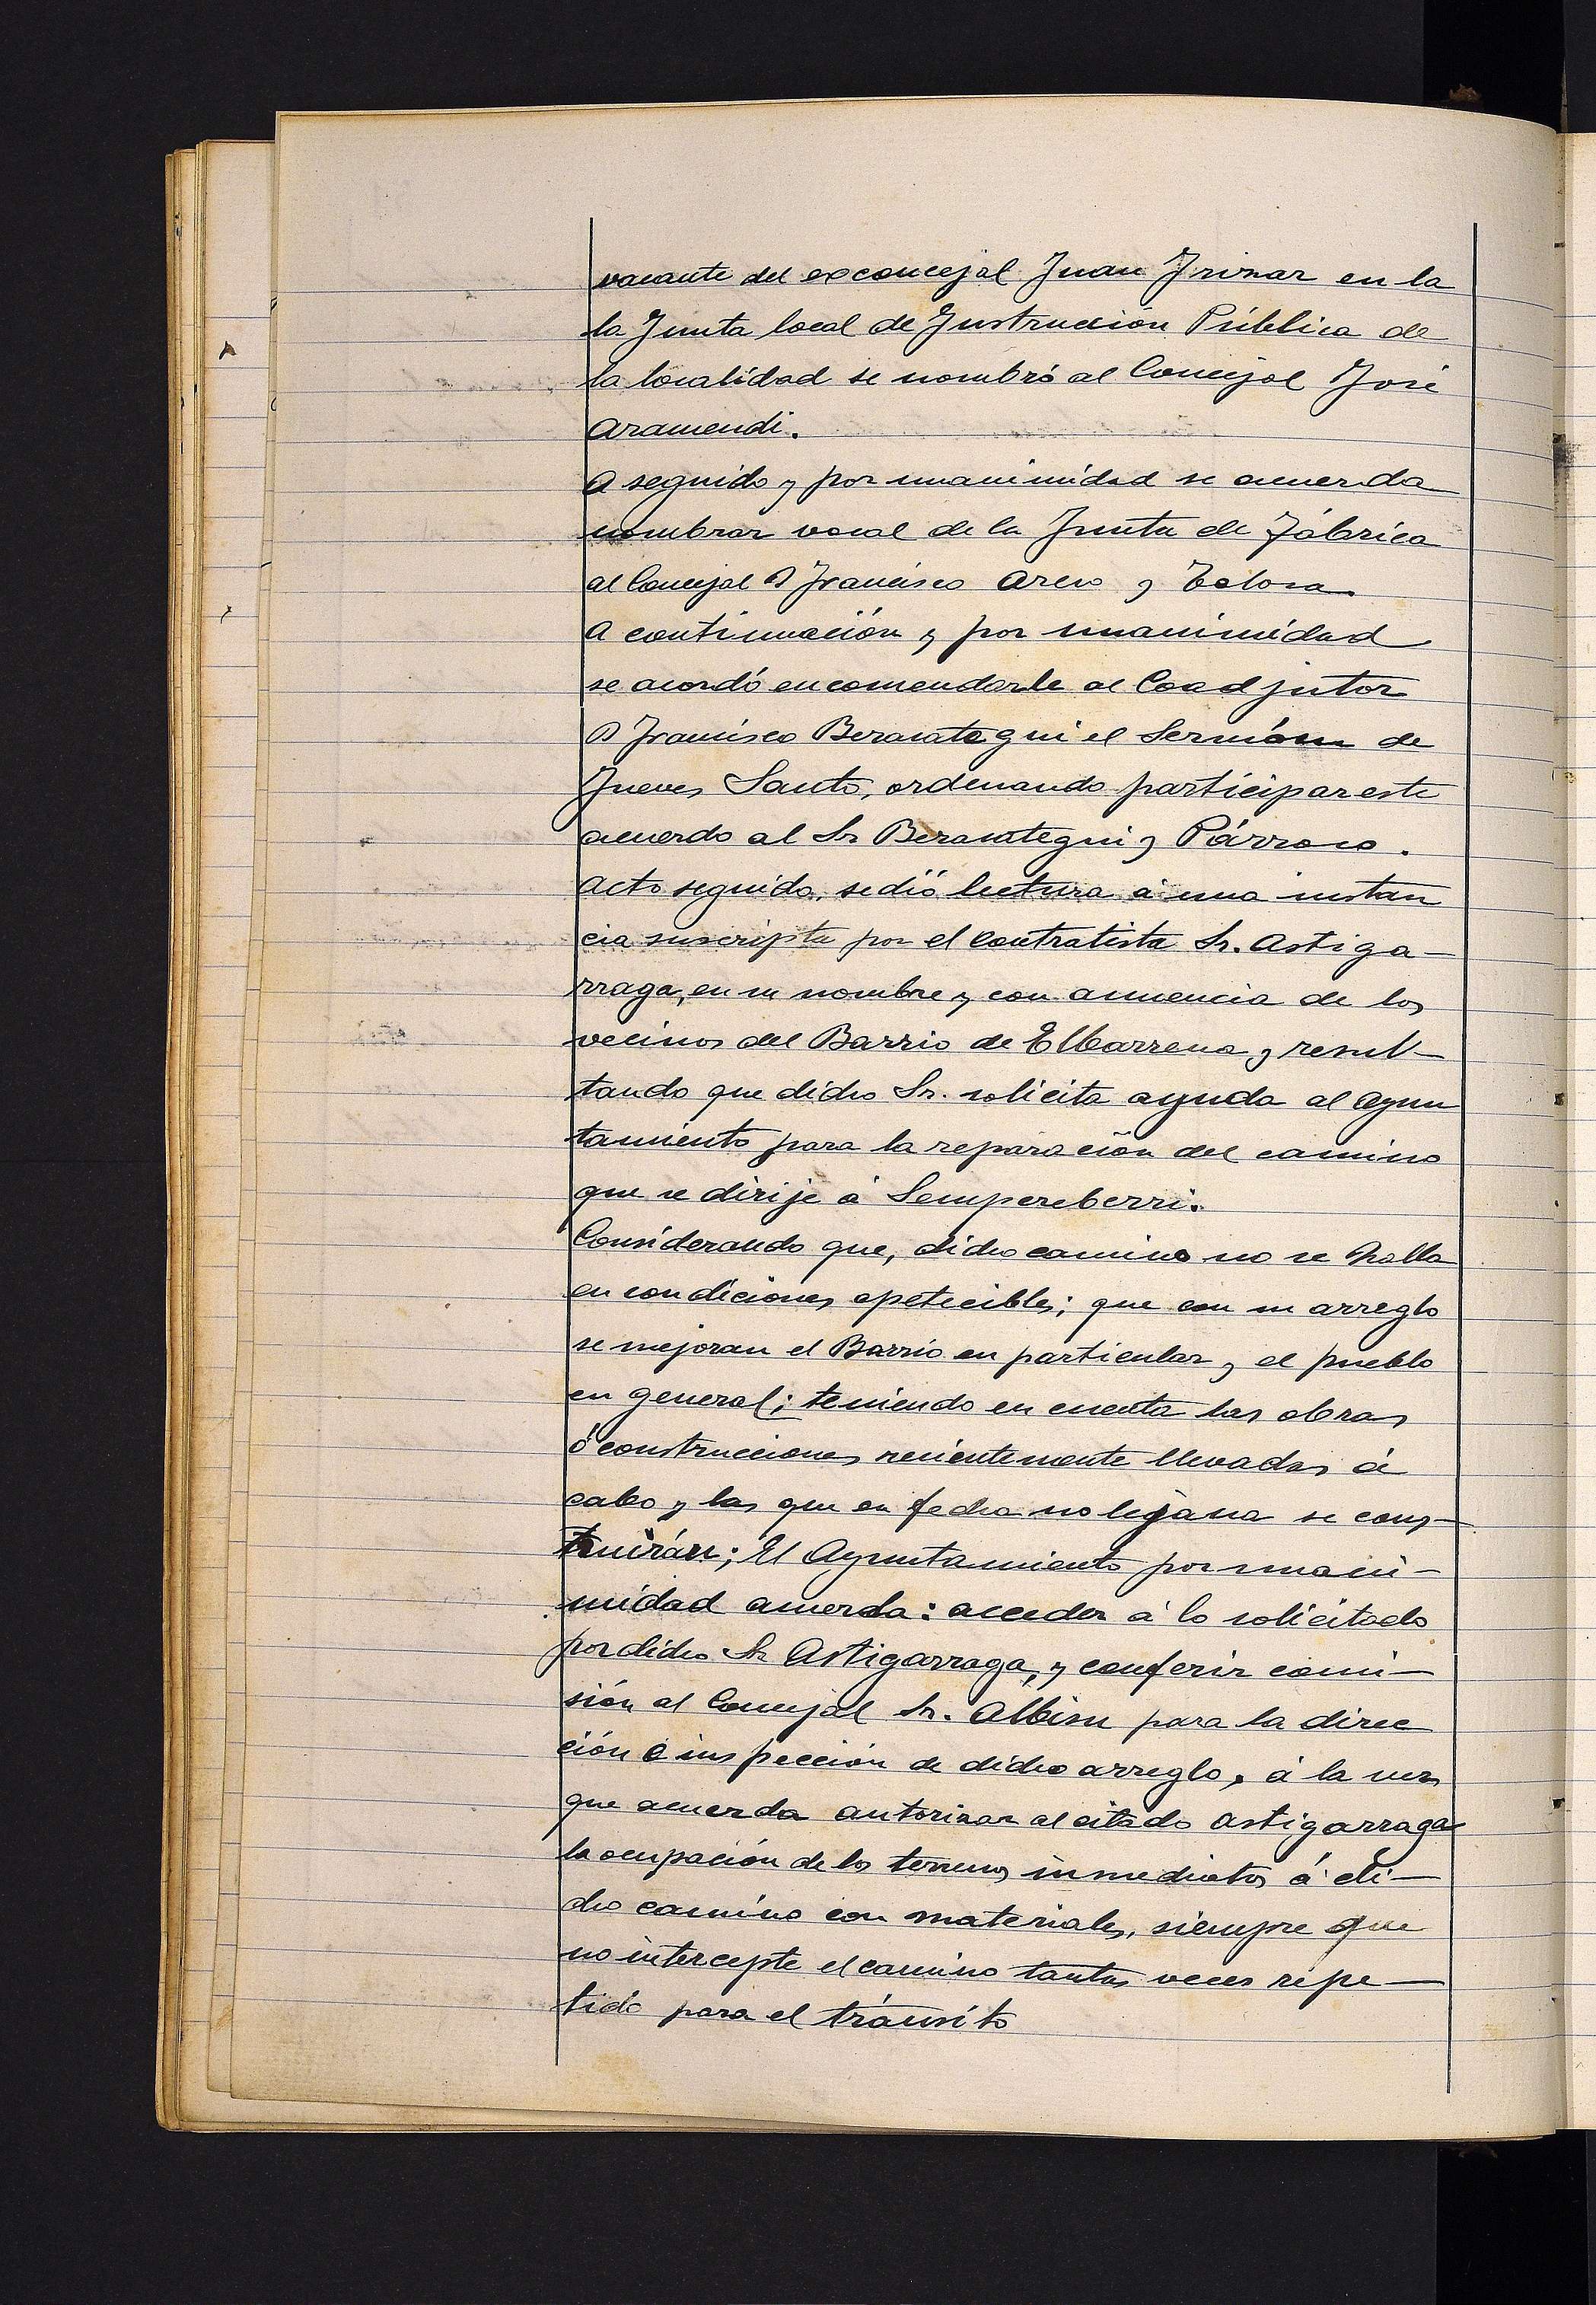 vacante del exconcejal Juan Irizar en la
la Junta local de Instrucción Pública de
la localidad se nombró al Concejal José
Aramendi.
A seguido y por unanimidad se acuerda
nombrar vocal de la Junta de Fábrica
al Concejal D Francisco Areso y Tolosa.
A continuación y por unanimidad
se acordó encomendarle al Coadjutor
D Francisco Berasategui el Sermón de
Jueves Santo, ordenando participar este
acuerdo al Sr Berasategui y Párroco.
Acto seguido, se dió lectura á una instan
cia suscripta por el contratista Sr. Astiga-
rraga, en su nombre y con anuencia de los
vecinos del Barrio de Elbarrena, y resul-
tando que dicho Sr. solicita ayuda al Ayun
tamiento para la reparación del camino
que se dirije á Sempereberri.
Considerando que, dicho camino no se halla
en condiciones apetecibles; que con su arreglo
se mejoran el Barrio en particular y el pueblo
en general; teniendo en cuenta las obras
ó construcciones recientemente llevadas á
cabo y las que en fecha no lejana se cons-
truirán; El Ayuntamiento por unani-
midad acuerda: acceder á lo solicitado
por dicho Sr Astigarraga, y conferir comi-
sión al Concejal Sr. Albisu para la direc
ción é inspección de dicho arreglo, á la vez
que acuerda autorizar al citado Astigarraga
la ocupación de los terrenos inmediatos á di-
cho camino con materiales, siempre que
no intercepte el camino tantas veces repe-
tido para el tránsito